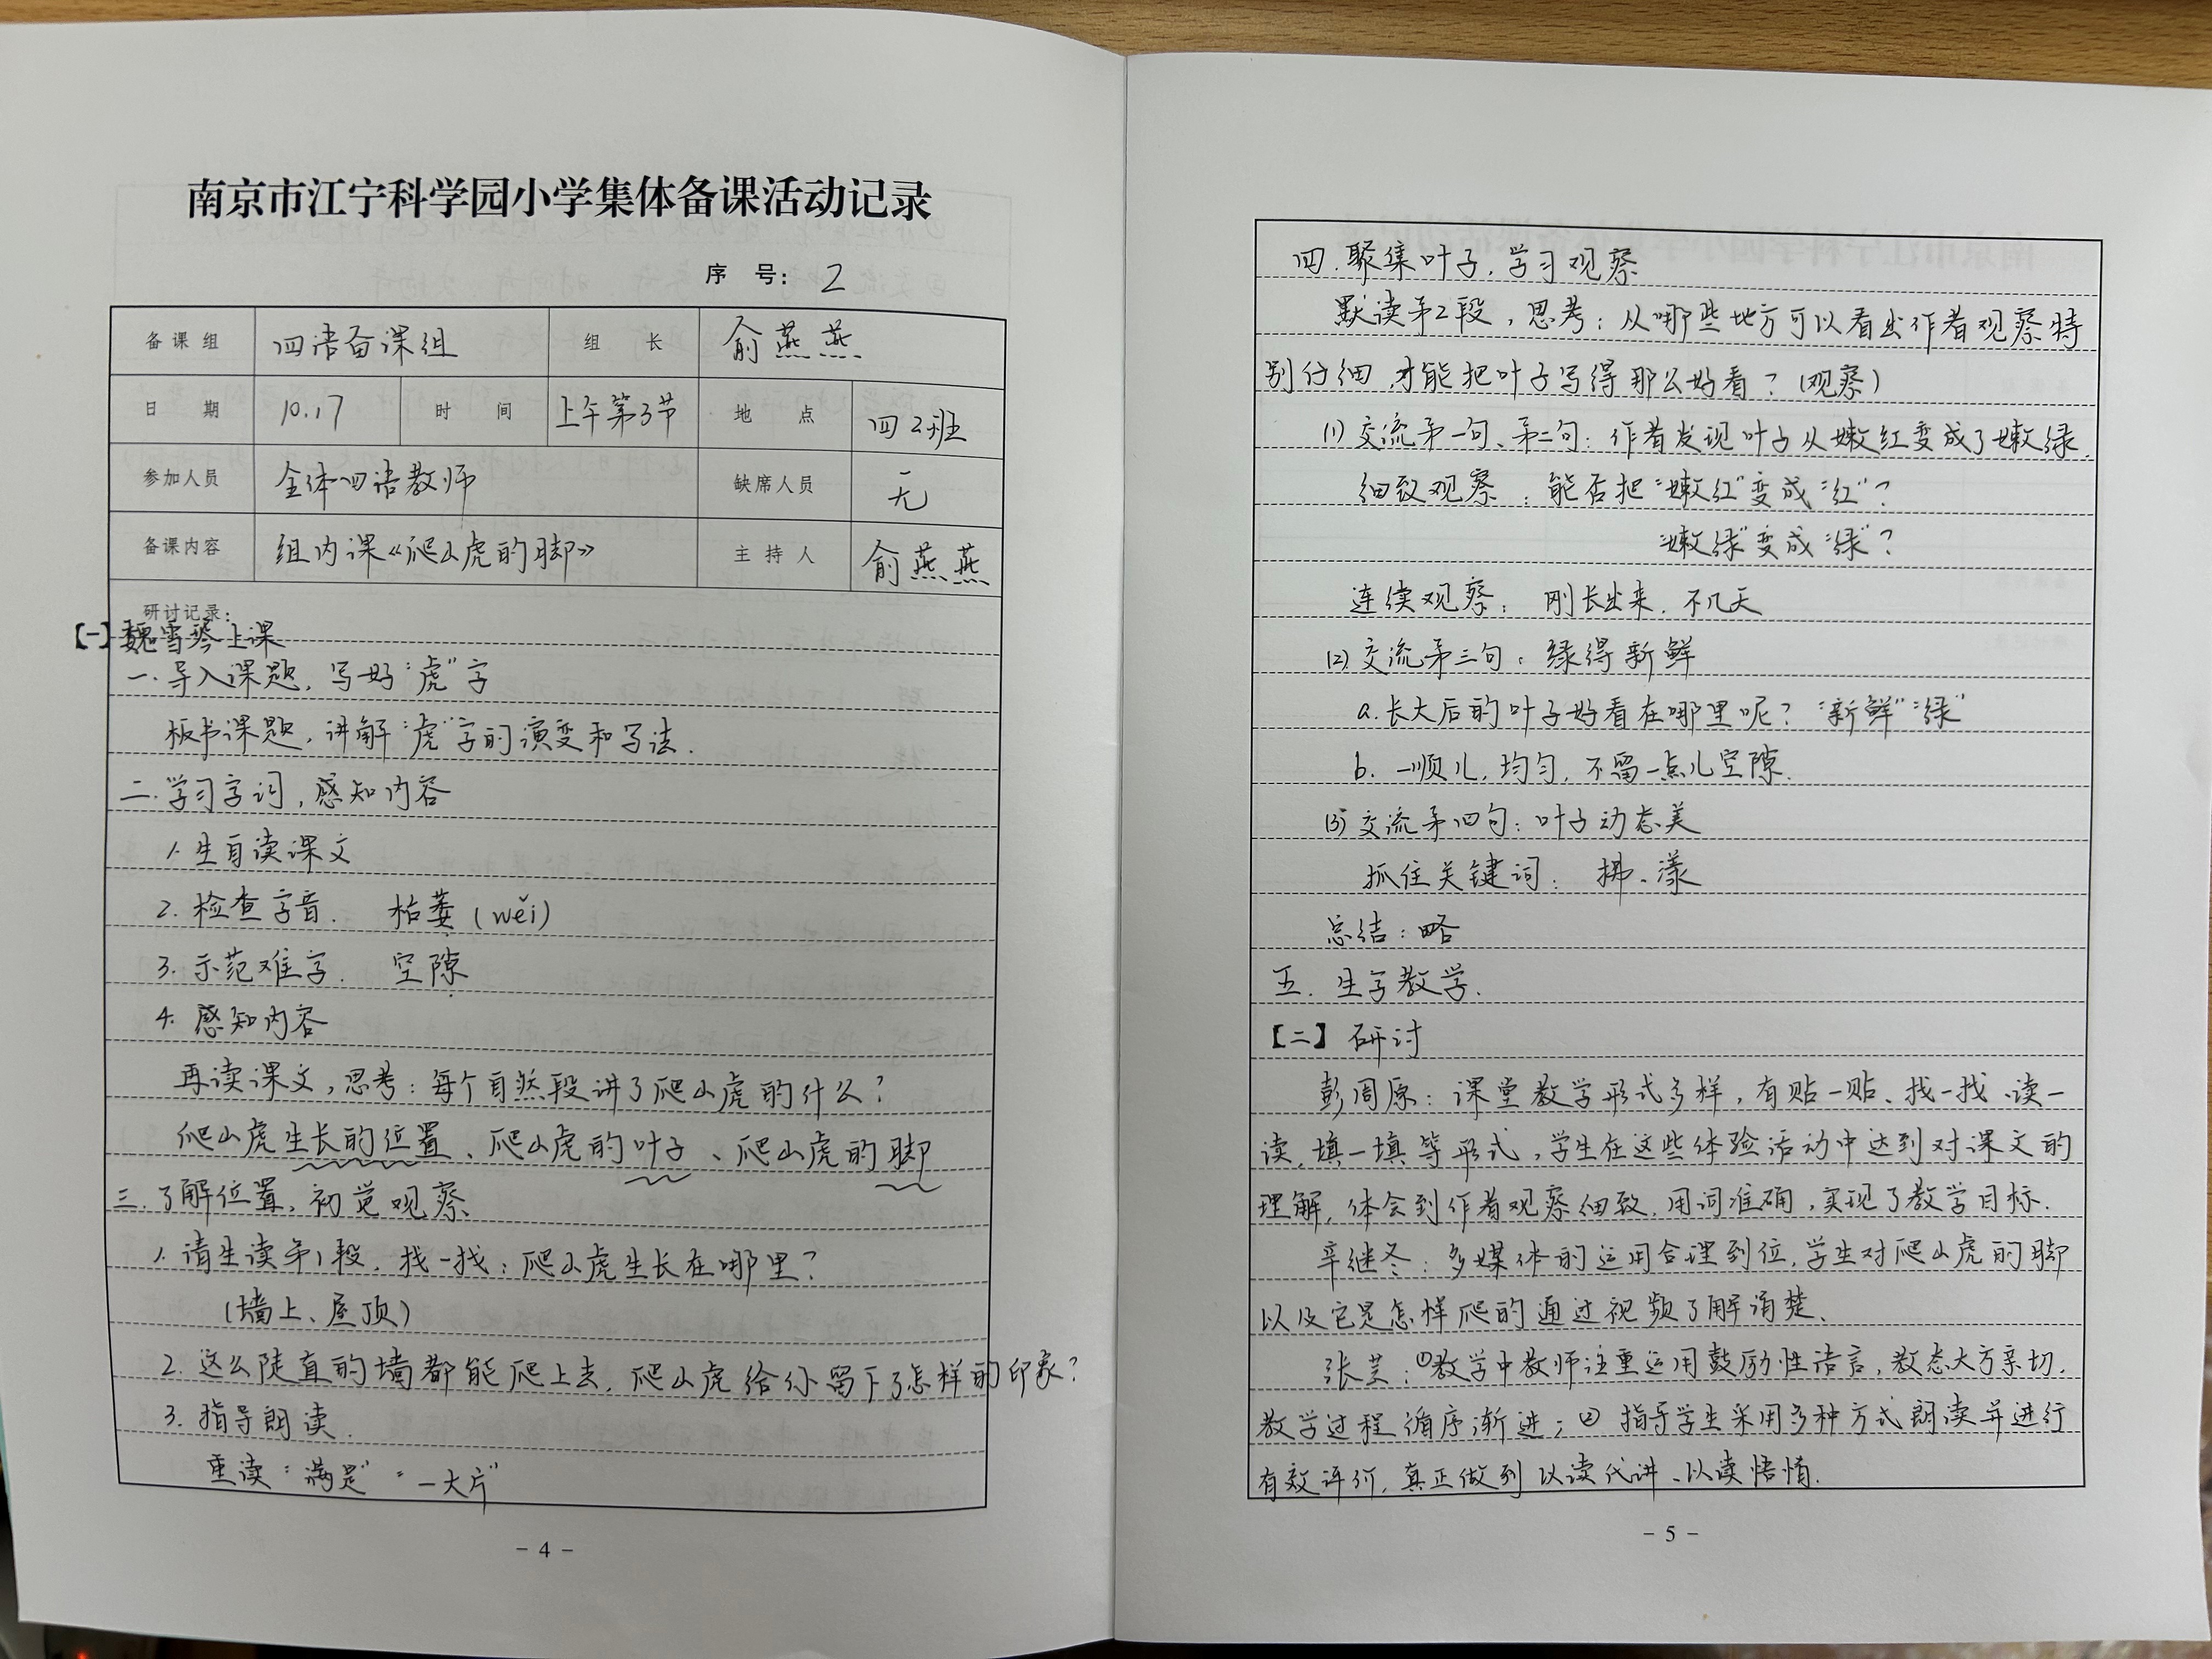 南京市江宁科学园小学集体备课活动记录
序 号: 2
备课组 四语备课组 组 长 俞燕燕
日 期 10.17 时 间 上午第3节 地 点 四2班
参加人员 全体四语教师 缺席人员 无
备课内容 组内课《爬山虎的脚》 主持人 俞燕燕
研讨记录:
【一】魏雪琴上课
一. 导入课题, 写好“虎”字
板书课题, 讲解“虎”字的演变和写法.
二. 学习字词, 感知内容
1. 生自读课文
2. 检查字音. 枯萎(wěi)
3. 示范难字. 空隙
4. 感知内容
再读课文, 思考: 每个自然段讲了爬山虎的什么?
爬山虎生长的位置、爬山虎的叶子、爬山虎的脚
三. 了解位置, 初觉观察
1. 请生读第1段. 找一找: 爬山虎生长在哪里?
(墙上、屋顶)
2. 这么陡直的墙都能爬上去, 爬山虎给你留下了怎样的印象?
3. 指导朗读.
重读“满是”“一大片”
- 4 -
四. 聚集叶子, 学习观察
默读第2段, 思考: 从哪些地方可以看出作者观察特
别仔细, 才能把叶子写得那么好看? (观察)
(1) 交流第一句、第二句: 作者发现叶子从嫩红变成了嫩绿.
细致观察: 能否把“嫩红”变成“红”?
“嫩绿”变成“绿”?
连续观察: 刚长出来. 不几天
(2) 交流第三句: 绿得新鲜
a. 长大后的叶子好看在哪里呢? “新鲜”“绿”
b. 一顺儿, 均匀, 不留一点儿空隙.
(3) 交流第四句: 叶子动态美
抓住关键词: 拂、漾
总结: 略
五. 生字教学.
【二】研讨
彭周原: 课堂教学形式多样, 有贴一贴、找一找、读一
读、填一填等形式, 学生在这些体验活动中达到对课文的
理解, 体会到作者观察细致, 用词准确, 实现了教学目标.
辛继冬: 多媒体的运用合理到位, 学生对爬山虎的脚
以及它是怎样爬的通过视频了解清楚.
张芸: ①教学中教师注重运用鼓励性语言, 教态大方亲切,
教学过程循序渐进; ② 指导学生采用多种方式朗读并进行
有效评价, 真正做到以读代讲、以读悟情.
- 5 -